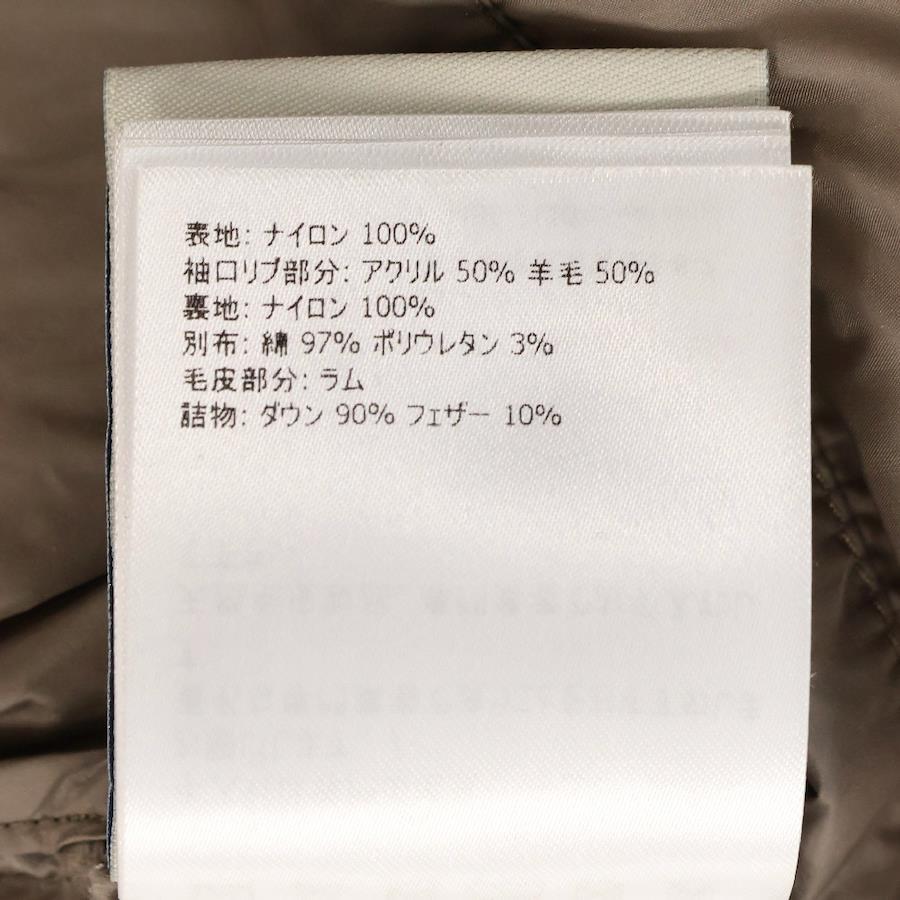 表地: ナイロン 100%
袖口リブ部分: アクリル 50% 羊毛 50%
裏地: ナイロン 100%
別布: 綿 97% ポリウレタン 3%
毛皮部分: ラム
詰物: ダウン 90% フェザー 10%